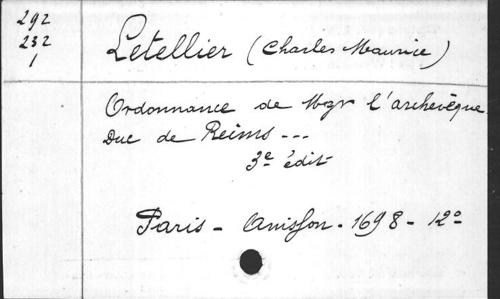 292
232
1
Letellier (Charles Maurice)
Ordonnance de Mgr l'archevêque
Duc de Reims ---
3e édit
Paris - Anisson - 1698 - 12o